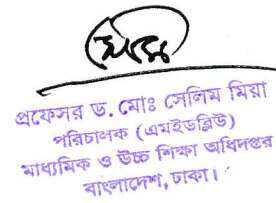 প্রফেসর ড. মোঃ সেলিম মিয়া
পরিচালক (এমইডব্লিউ)
মাধ্যমিক ও উচ্চ শিক্ষা অধিদপ্তর
বাংলাদেশ, ঢাকা।